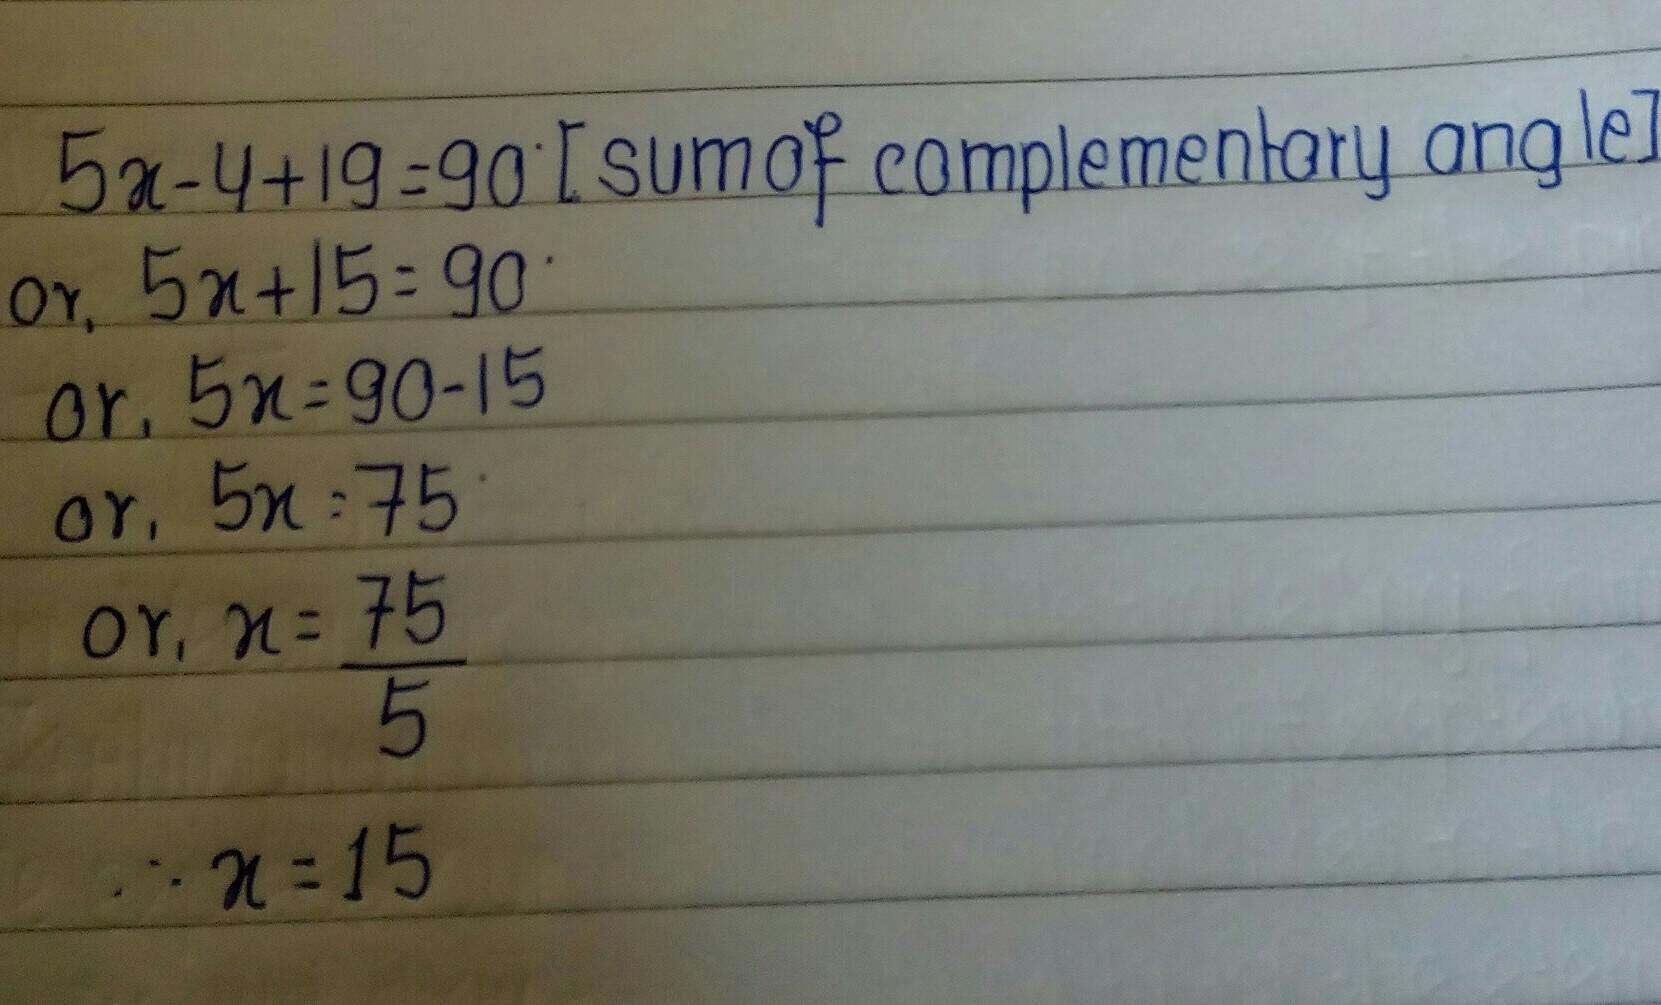 5x-4+19=90° [sum of complementary angle]
or, 5x+15=90°
or, 5x=90-15
or, 5x=75°
or, x=75/5
∴ x=15